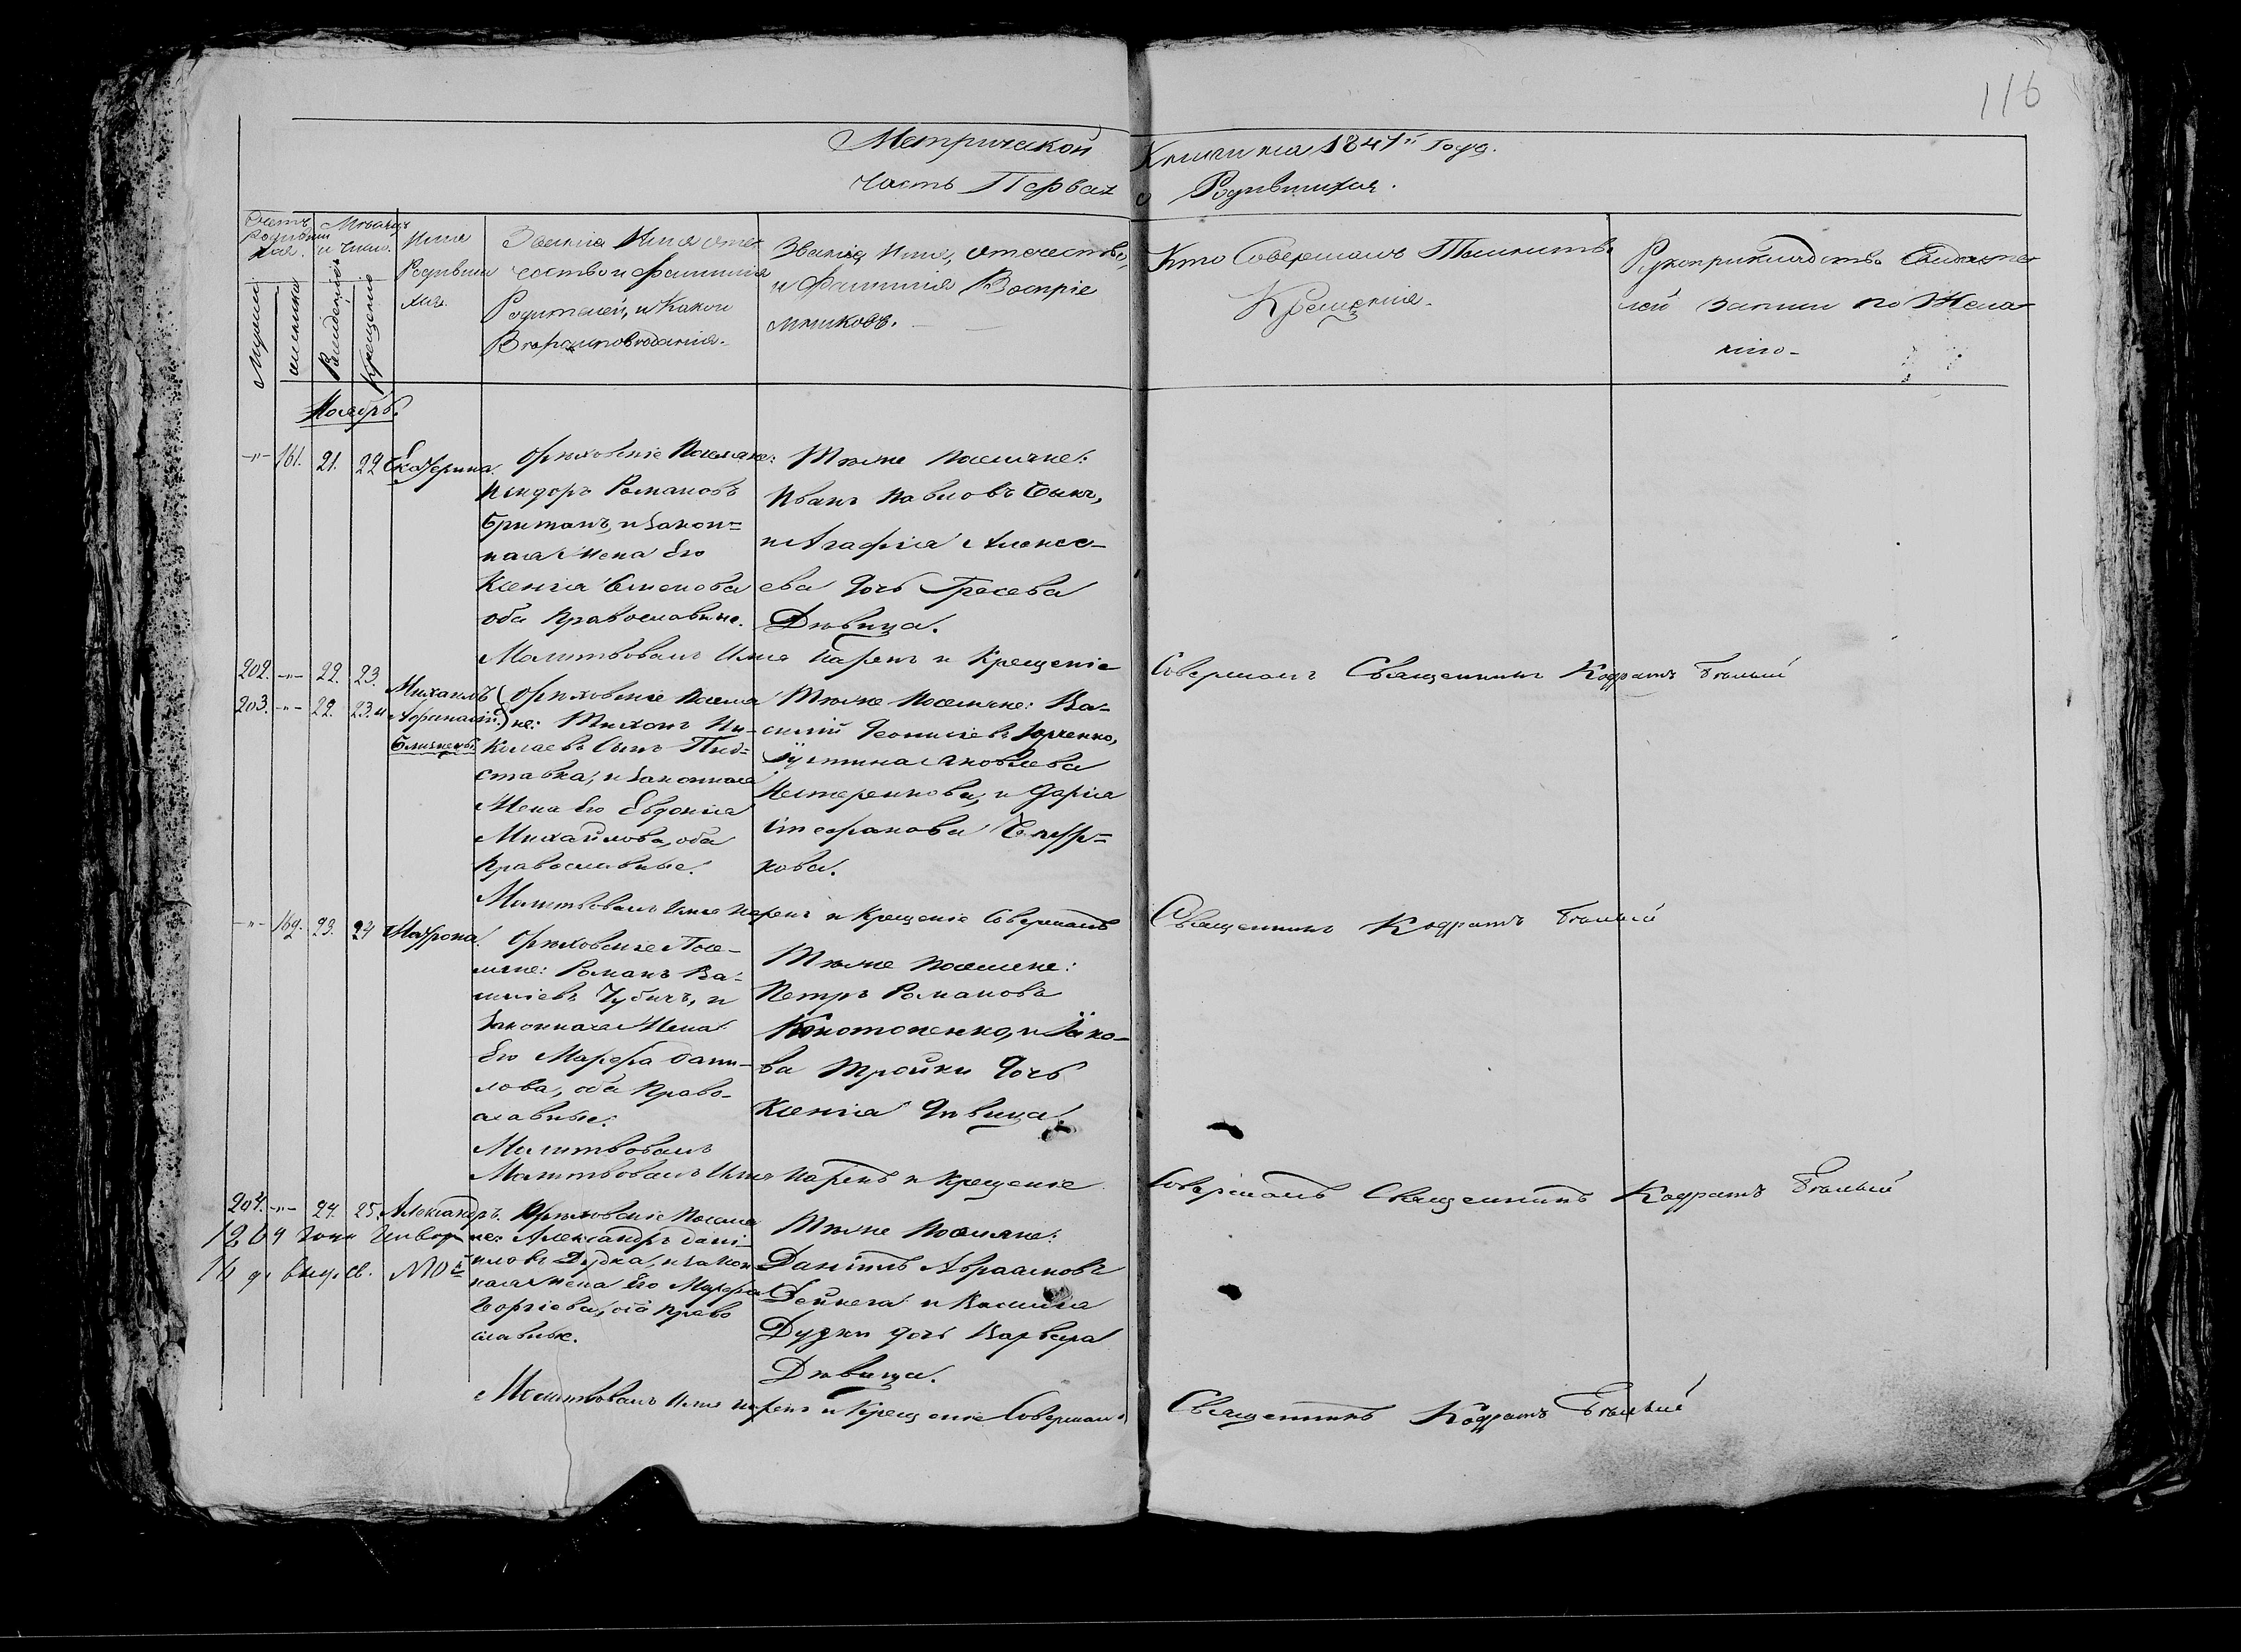 116
Метрической Книги на 1847й Годъ.
Часть Первая о Родившихся.
Счетъ Родивших
хся.
Мѣсяцъ
и число.
Мужеска
женска
Рожденія
Крещенія
Имя
Родивши
хся.
Званія Имя отче
ство и фамилія
Родителей, и Какого
Вѣроисповѣданія.
Званія Имя, отечество,
и Фамилія Воспріе
мниковъ.
Кто Совершалъ Таинство
Крещенія.
Рукоприкладство Свидѣте
лей записи по Жела
нію
Ноябрь.
-"- 161. 21. 22 Екатерина.
Орѣховскіе Поселяне:
Романовъ
Британъ, и Закон=
ная Жена Его
Ксенія Семенова
оба Православные.
Тѣже Поселяне:
Иванъ Павловъ
и Агафія Алексѣ-
ева дочь
Дѣвица.
Молитвовалъ Имя нарекъ и Крещеніе Совершалъ Священникъ Кодратъ Бѣлый
202. -"- 22. 23.
203. -"- 22. 23. и
Михаилъ
Афанасій
Близнецы
Орѣховскіе Поселя
не: Тихонъ Ни-
колаевъ Сынъ Под=
ставка, и Законная
Жена Его Евдокія
Михайлова, оба
Православные.
Тѣже Поселяне: Ва-
силій Леонтіевъ Юрченко,
Іустина Яковлева
Нестеренкова, и Дарія
Стефанова
кова.
Молитвовалъ Имя нарекъ и Крещеніе Совершалъ Священникъ Кодратъ Бѣлый
-"- 162. 23. 24 Матрона.
Орѣховскіе Посе-
ляне: Романъ Ва-
силіевъ Чубичъ, и
Законная Жена
Его Марфа Дани-
лова, оба Право-
славные.
Тѣже Поселяне:
Петръ Романовъ
Конотопенко, и Яко-
ва Тройки дочь
Ксенія Дѣвица.
Молитвовалъ
Молитвовалъ Имя Нарекъ и Крещеніе Совершалъ Священникъ Кодратъ Бѣлый
204. -"- 24. 25. Александръ.
Орѣховскіе Поселя
не: Александръ Дані-
иловъ Дудка, и Закон
ная жена Его Марфа
Георгіева, оба Право
славные.
Тѣже Поселяне:
Даніилъ Авраамовъ
Дейнега и Василія
Дудки дочь Варвара
Дѣвица.
Молитвовалъ Имя нарекъ и Крещеніе Совершалъ Священникъ Кодратъ Бѣлый